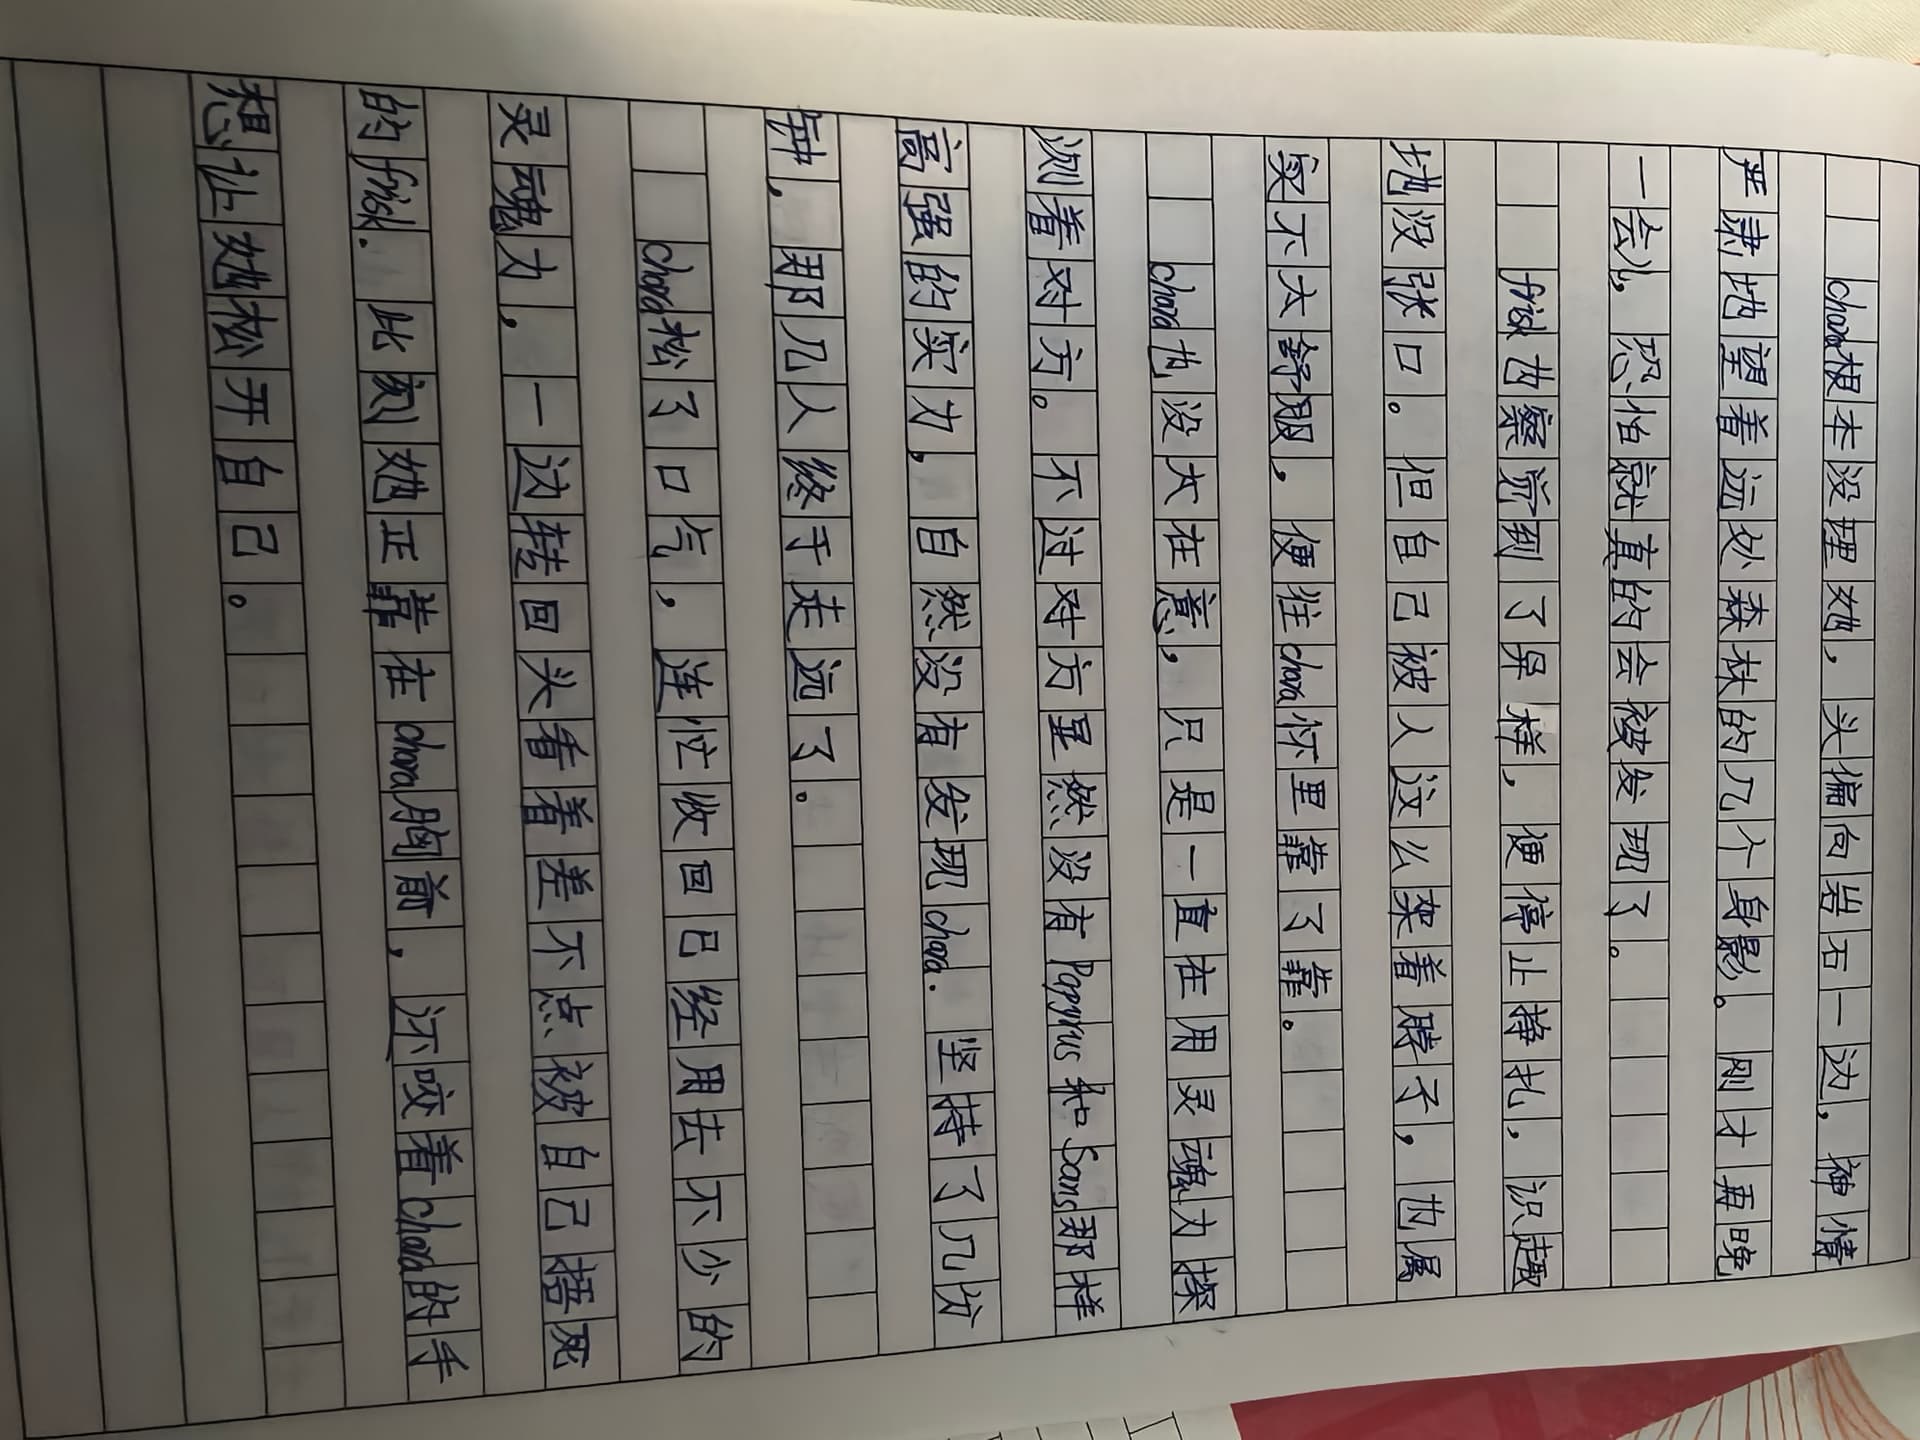 chara根本没理她，头偏向岩石一边，神情
严肃地望着远处森林的几个身影。刚才再晚
一会儿，恐怕就真的会被发现了。
frisk也察觉到了异样，便停止挣扎，识趣
地没张口。但自己被人这么架着脖子，也属
实不大舒服，便往chara怀里靠了靠。
chara也没太在意，只是一直在用灵魂力探
测着对方。不过对方显然没有Papyrus和Sans那样
高强的实力，自然没有发现chara. 坚持了几分
钟，那几人终于走远了。
chara松了口气，连忙收回已经用去不少的
灵魂力，一边转回头看着差不点被自己捂死
的frisk. 此刻她正靠在chara胸前，还咬着chara的手
想让她松开自己。